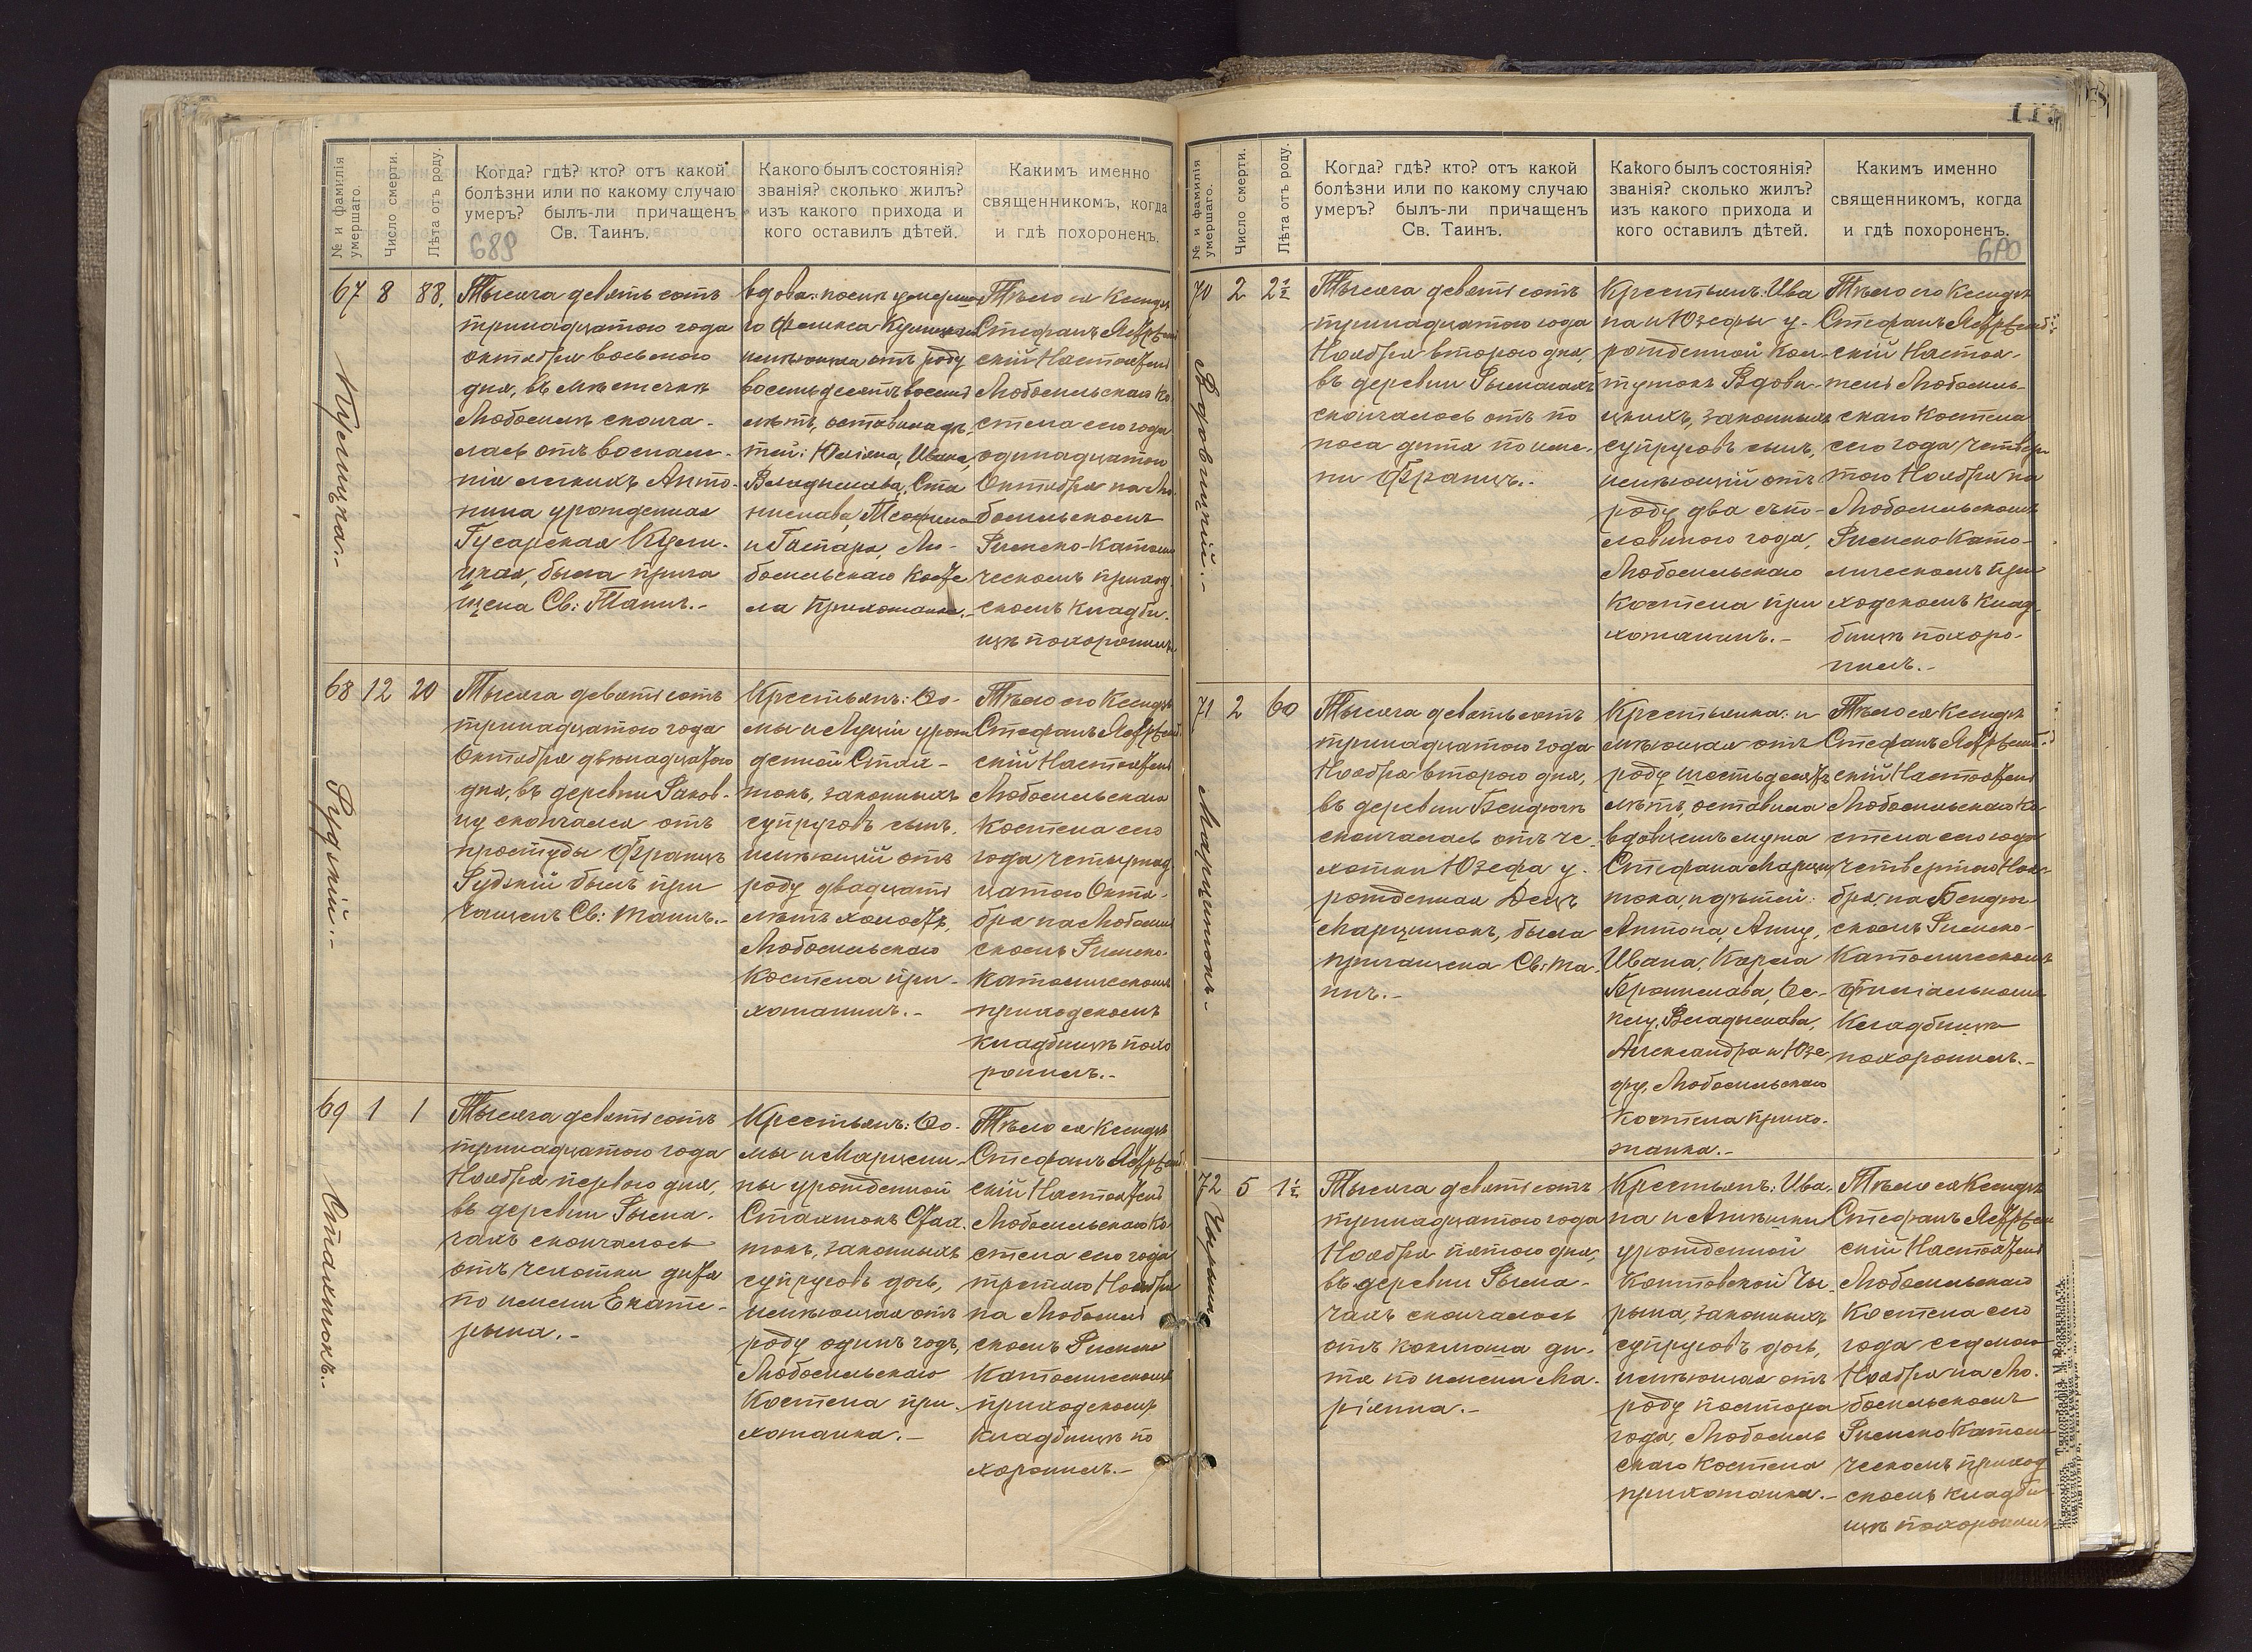 № и фамилія умершаго.
Число смерти.
Лѣта отъ роду.
Когда? гдѣ? кто? отъ какой
болѣзни или по какому случаю
умеръ? былъ-ли причащенъ
Св. Таинъ.
689
Какого былъ состоянія?
званія? сколько жилъ?
изъ какого прихода и
кого оставилъ дѣтей.
Какимъ именно
священникомъ, когда
и гдѣ похороненъ.
67
8
88.
Тысяча девятьсотъ
тринадцатого года
октября восьмого
дня, въ мѣстечкѣ
Любомлѣ сконча-
лась отъ воспале-
нія легкихъ Анто-
нина урожденная
Гусарская
была прича
щена Св: Таинъ.-
вдова: послѣ
го Феликса
имѣющая отъ роду
восемьдесятъ восемь
лѣтъ, оставила дѣ-
тей: Юліяна, Ивана,
Владислава, Ста
нислава,
и Гаспара, Лю-
бомльскаго косте
ла прихожанка.-
Тѣло ея Ксендзъ
Стефанъ
скій Настоятель
Любомльскаго Ко
стела сего года
одинадцатого
Октября на Лю-
бомльскомъ
Римско-Католи
ческомъ приход
скомъ кладби-
щѣ похоронилъ.
68
12
20
Рудскій.-
Тысяча девятьсотъ
тринадцатого года
Октября двѣнадцатого
дня, въ деревни Раков-
цу скончался отъ
простуды Францъ
Рудскій былъ при
чащенъ Св: таинъ.-
Крестьянъ: Ѳо-
мы и Луціи урож
денной Стах-
токъ, законныхъ
супруговъ сынъ,
имѣющій отъ
роду двадцать
лѣтъ холостъ,
Любомльскаго
Костела при-
хожанинъ.-
Тѣло его Ксендзъ
Стефанъ
скій Настоятель
Любомльскаго
Костела сего
года четырнад
цатого Октя-
бря на Любомль
скомъ Римско-
Католическомъ
приходскомъ
кладбищѣ похо
ронилъ.-
69
1
1
Тысяча девятьсотъ
тринадцатого года
Ноября перваго дня,
въ деревни Рыма-
чахъ скончалось
отъ чехотки дитя
по имени Екате-
рына.-
Крестьянъ: Ѳо-
мы и Марцели-
ны урожденной
законныхъ
супруговъ дочь,
имѣющая отъ
роду одинъ годъ,
Любомльскаго
Костела при-
хожанка.-
Тѣло ея Ксендзъ
Стефанъ
скій Настоятель
Любомльскаго Ко-
стела сего года
третяго Ноября
на Любомль
скомъ Римско
Католическомъ
приходскомъ
кладбищѣ по
хоронилъ.-
№ и фамилія умершаго.
Число смерти.
Лѣта отъ роду.
Когда? гдѣ? кто? отъ какой
болѣзни или по какому случаю
умеръ? былъ-ли причащенъ
Св. Таинъ.
Какого былъ состоянія?
званія? сколько жилъ?
изъ какого прихода и
кого оставилъ дѣтей.
Какимъ именно
священникомъ, когда
и гдѣ похороненъ.
70
2
2½
Вдовицкій.-
Тысяча девятьсотъ
тринадцатого года
Ноября второго дня,
въ деревни Рымачахъ
скончалось отъ по
носа дитя по име-
ни Францъ.-
Крестьянъ: Ива
на и Юзефы у-
рожденной
Вдови-
цкихъ, законныхъ
супруговъ сынъ,
имѣющій отъ
роду два съ по-
ловиного года,
Любомльскаго
Костела при
хожанинъ.-
Тѣло его Ксендзъ
Стефанъ
скій Настоя-
тель Любомль-
скаго Костела
сего года четвер
того Ноября на
Любомльскомъ
Римско Като-
лическомъ при
ходскомъ клад-
бищѣ похоро-
нилъ.-
71
2
60
Марцитокъ.-
Тысяча девятьсотъ
тринадцатого года
Ноября второго дня,
въ деревни Бендюгѣ
скончалась отъ че-
хотки Юзефа у-
рожденная Децъ
Марцитокъ, была
причащена Св: та-
инъ.-
Крестьянка: и
мѣющая отъ
роду шестьдесятъ
лѣтъ, оставила
вдовцемъ мужа
Стефана Марци
тока, и дѣтей:
Антона, Анну,
Ивана, Кароля
Бронислава,
Владыслава,
Александра и Юзе
фу, Любомльскаго
Костела прихо-
жанка.-
Тѣло ея Ксендзъ
Стефанъ
скій Настоятель
Любомльскаго Ко-
стела сего года
четвертого Ноя-
бря на Бендюг
скомъ Римско-
Католическомъ
филіальномъ
Кладбищѣ
похоронилъ.-
72
5
1½
Тысяча девятьсотъ
тринадцатого года
Ноября пятого дня,
въ деревни Рыма-
чахъ скончалось
отъ коклюша ди-
тя по имени Ма-
ріянна.-
Крестьянъ: Ива-
на и
урожденной
Чы-
рына, законныхъ
супруговъ дочь,
имѣющая отъ
роду полтора
года, Любомль
скаго Костела
прихожанка.-
Тѣло ея Ксендзъ
Стефанъ
скій Настоятель
Любомльскаго
Костела сего
года седмого
Ноября на Лю-
бомльскомъ
Римско Католи
ческомъ приход
скомъ кладби-
щѣ похоронилъ